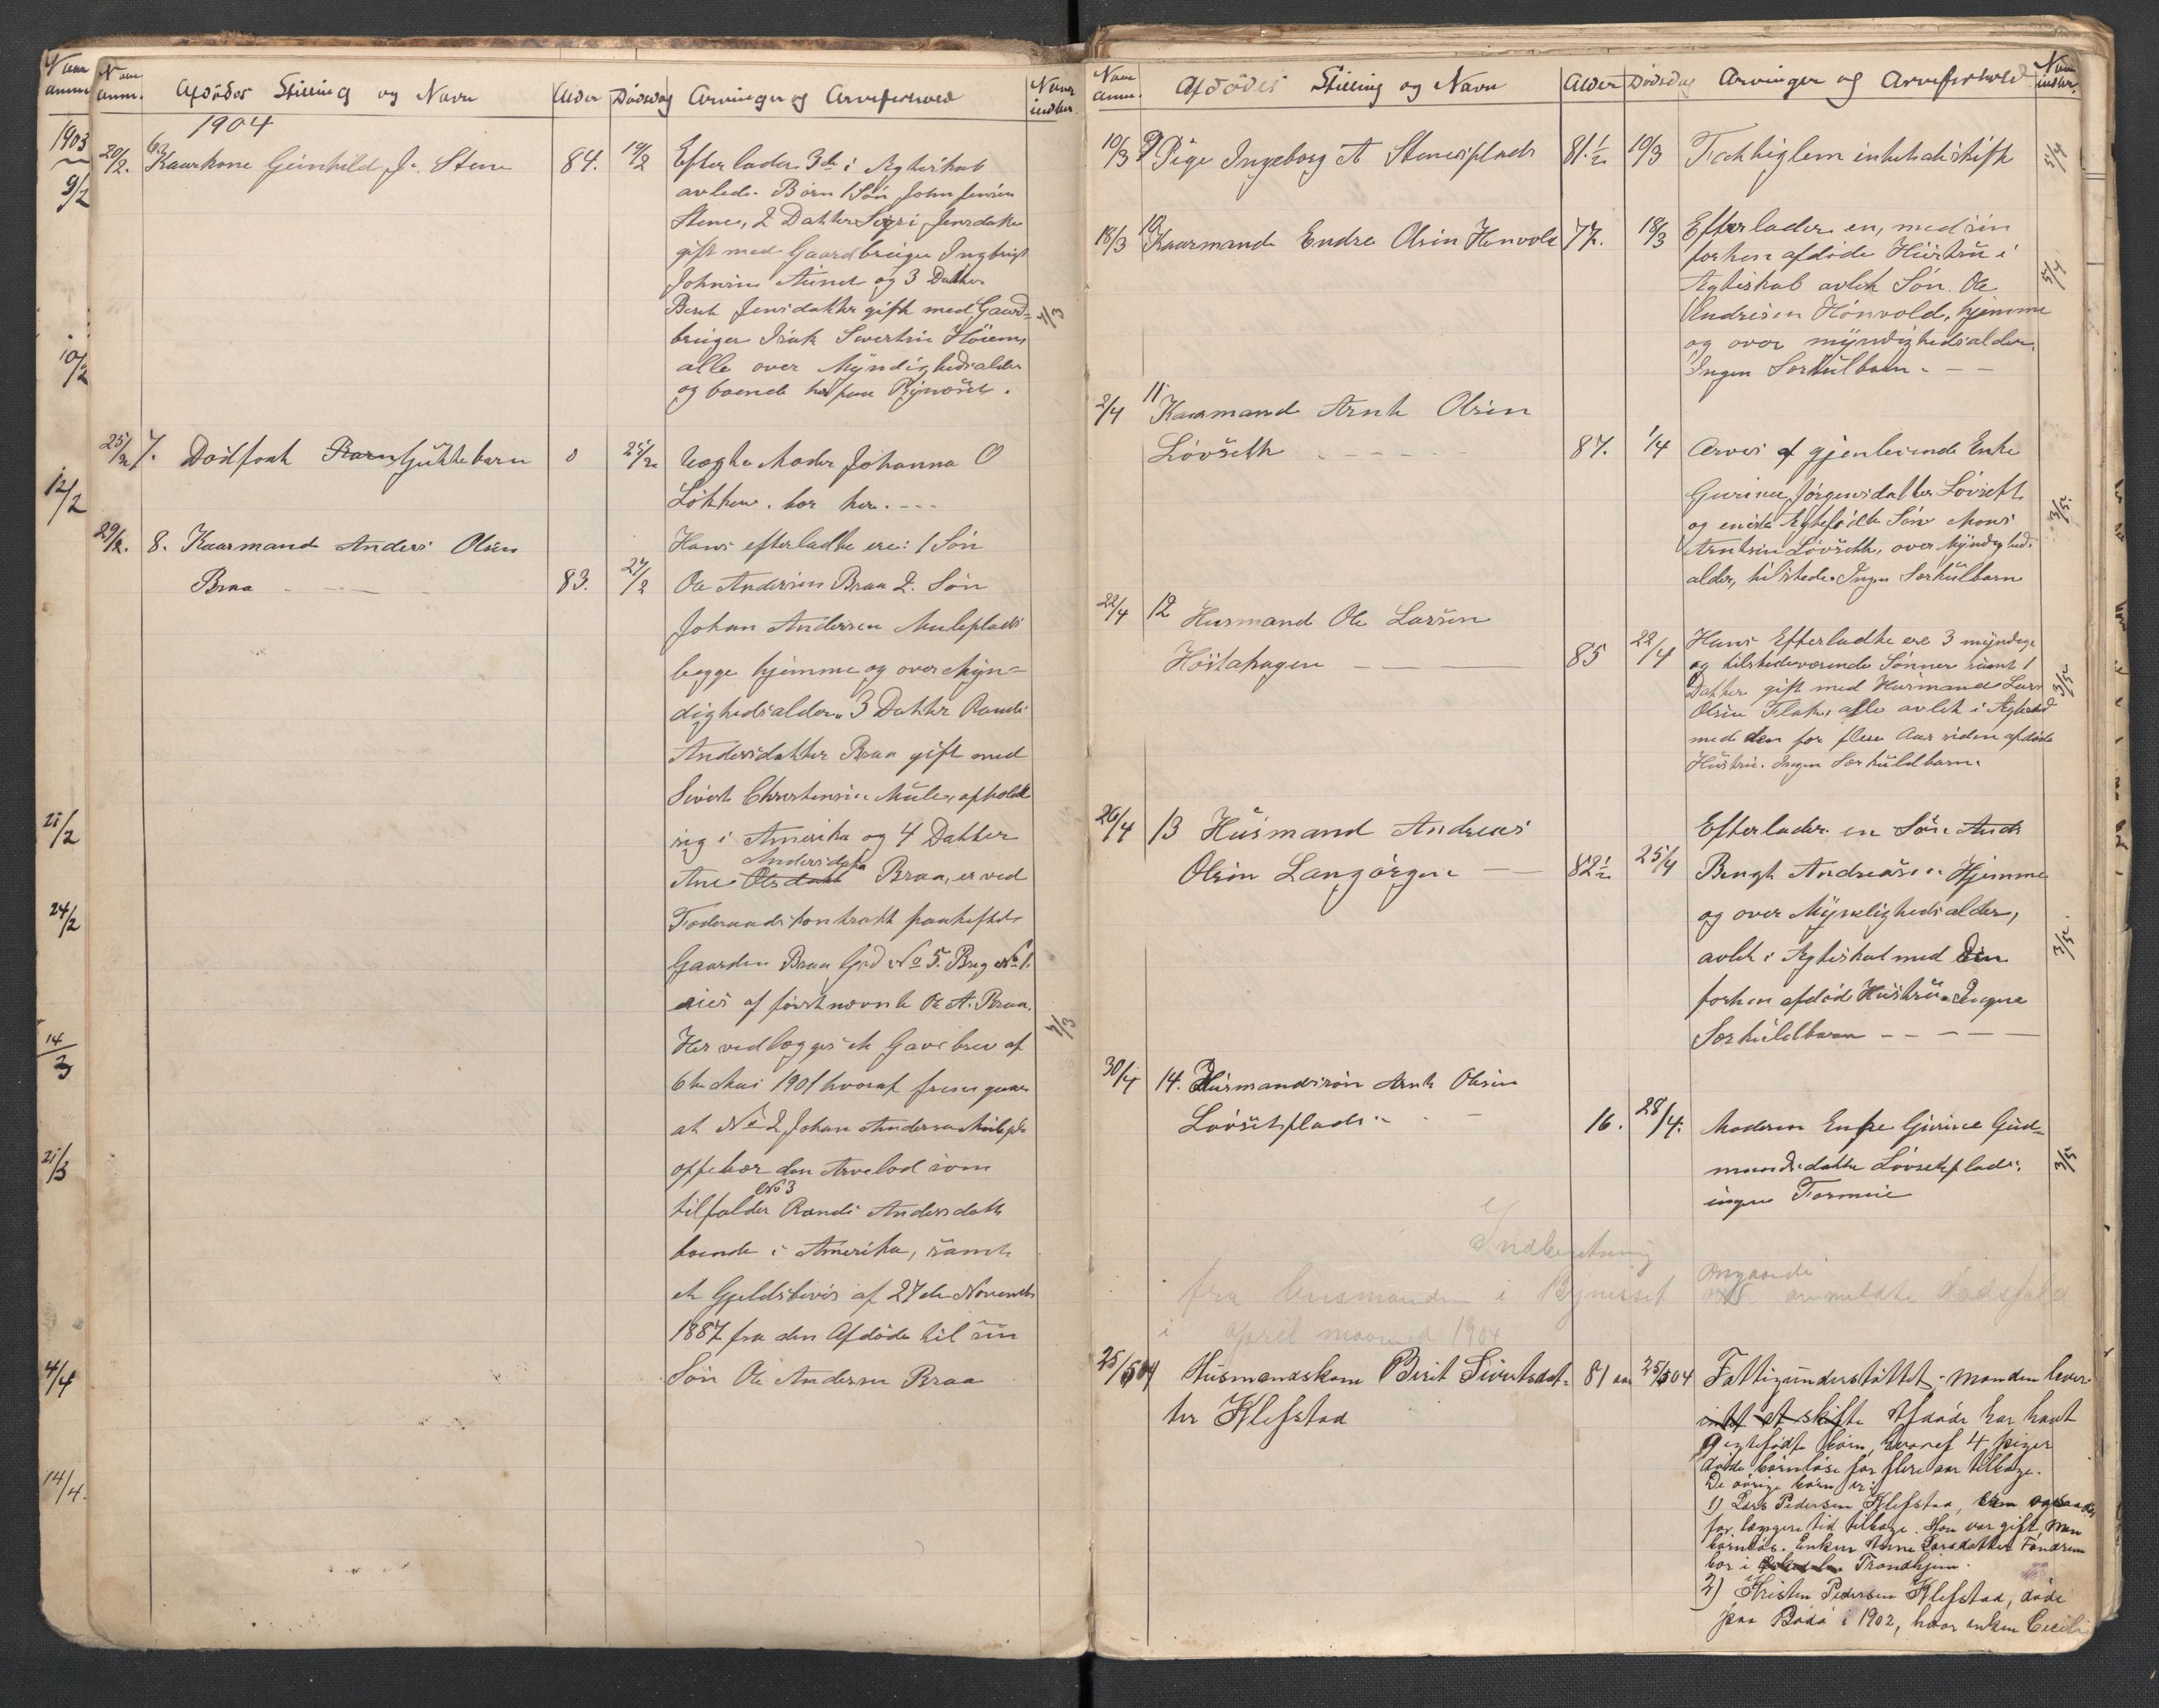 Naar anm. Afdødes Stilling og Navn Alder Dødsdag Arvinger og Arveforhold Naar indber.
1903
9/2
10/2
12/2
21/2
24/2
14/3
21/3
4/4
14/4.
1904
20/2. 6. Kaarkone Gunhild J. Stene 84. 19/2 Efterlader 3de i Ægteskab
avlede Børn 1 Søn John Jensen
Stene, 2 Datter Sigri Jensdatter
gift med Gaardbruger Ingbrigt
Johnsen Aunet og 3 Datter
Berit Jensdatter gift med Gaard-
bruger Isak Sivertsen Høiem
alle over Myndighedsalder
og boende her paa Bynæsset. 7/3
25/2 7. Dødfødt Barn Guttebarn 0 25/2 Uægte Moder Johanna O
Løkken. bor her. ---
29/2. 8. Kaarmand Anders Olsen Hans efterladte ere: 1 Søn
Braa 83. 27/2 Ole Andersen Braa 2. Søn
Johan Andersen Muleplads
begge hjemme og over Myn-
dighedsalder. 3 Datter Randi
Andersdatter Braa gift med
Sivert Christensen Mule, opholder
sig i Amerika og 4 Datter
Andersdatter
Ane Olsdatt Braa, er ved
Føderaadskontrakt paaheftet
Gaarden Braa Grd No 5. Brg No 1.
eies af førstnævnte Ole A. Braa.
Her vedlægges et Gavebrev af
6te Mai 1901 hvoraf fremgaar
at No 2 Johan Andersen Mulepl.
oppebær den Arvelod som
No 3
tilfalder Randi Andersdatter
boende i Amerika, samt
et Gjeldsbevis af 27de November
1887 fra den Afdøde til sin
Søn Ole Andersen Braa
7/3
Naar anm. Afdødes Stilling og Navn Alder Dødsdag Arvinger og Arveforhold Naar indber.
10/3 9 Pige Ingeborg A Stenesplads 81 1/2 10/3 Fattiglem intet at skifte 5/4
18/3 10 Kaarmand Endre Olsen Hønvold 77. 18/3 Efterlader en, med sin
forhen afdøde Hustru i
Ægteskab avlet Søn Ole
Endresen Hønvold, hjemme
og over myndighedsalder.
Ingen Særkulbarn. - - 5/4
2/4 11. Kaarmand Arnt Olsen
Løvseth 87. 1/4 Arves af gjenlevende Enke
Gurine Jørgensdatter Løvseth
og eneste Ægtefødte Søn Mons
Arntsen Løvseth, over Myndigheds
alder, tilstede. Ingen Særkulbarn 3/5.
22/4 12 Husmand Ole Larsen
Høstahagen 85 22/4 Hans Efterladte ere 3 myndige
og tilstedeværende Sønner samt 1
Datter gift med Husmand Lars
Olsen Flak, alle avlet i Ægteskab
med den for flere Aar siden afdøde
Hustru. Ingen Særkuldbarn. 3/5
26/4 13 Husmand Andreas Efterlader en Søn Andr
Olsen Langørgen 82 1/2 25/4 Bengt Andreasen Hjemme
og over Myndighedsalder,
avlet i Ægteskab med Sin
forhen afdøde Hustru. Ingen
Særkuldbarn - - - - 3/5.
30/4 14. Husmandssøn Arnt Olsen
Løvsetplads. 16. 28/4. Moderen Enke Gurine Gud-
mundsdatter Løvsetplads.
ingen Formue 3/5
Indberetning
fra lensmanden i Bynesset angaaende anmeldte dødsfald
i april maaned 1904
25/5 04 Husmandskone Berit Sivertsdat- 81 aar 25/5 04 Fattigunderstøttet. Manden lever.
ter Klefstad intet at skifte Afdøde har havt
9 egtefødte børn, hvoraf 4 piger
døde barnløse for flere aar tilbage.
De øvrige børn er:
1) Lars Pedersen Klefstad, som ogsaa døde
for længere tid tilbage. Han var gift, men
barnløs. Enken Larsdatter
bor i Trondhjem.
2) Kristen Pedersen Klefstad, døde
paa Bodø i 1902, hvor enken Cecilie